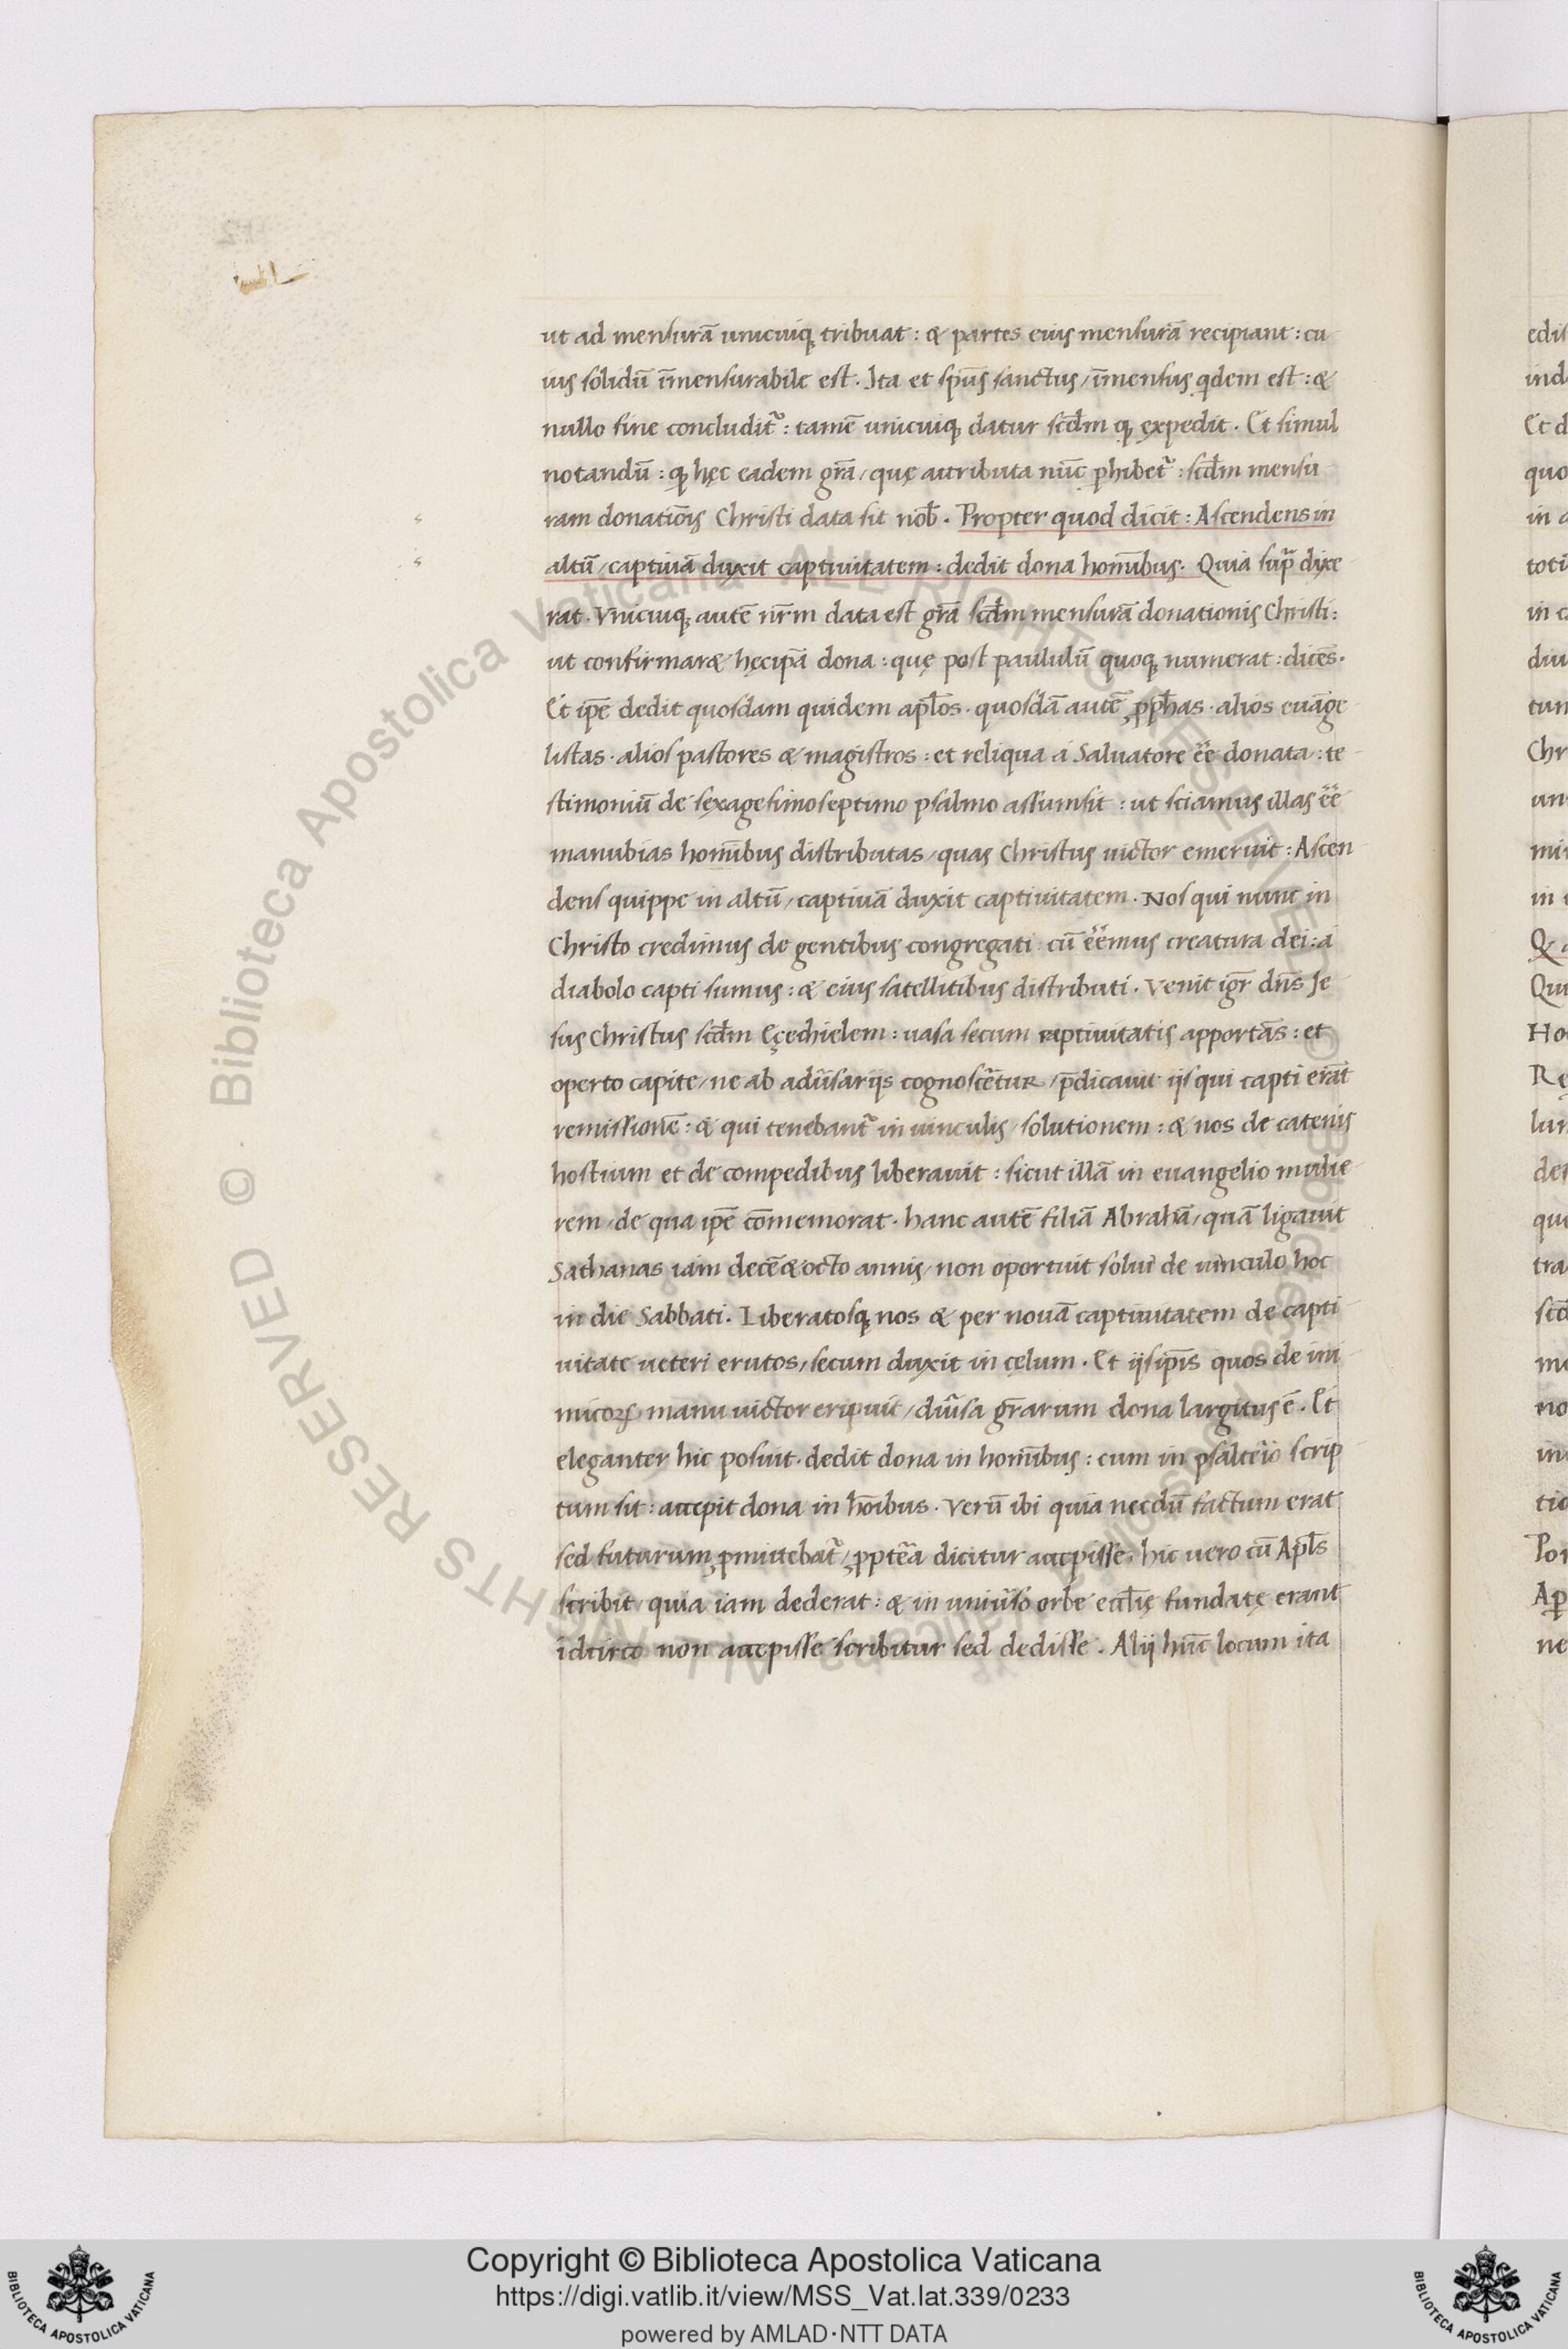 ut ad mensurā unicuiq; tribuat : & partes eius mensurā recipiant : cu
ius solidū īmensurabile est. Ita et spūs sanctus / īmensus qdem est : &
nullo fine concluditr̃ : tamē unicuiq; datur scd̄m q expedit. Et simul
notandū : q hęc eadem gr̄a / quę attributa nūc phibetr̃ : scd̄m mensu
ram donatiōis Christi data sit nob̄. Propter quod dicit : Ascendens in
altū / captiuā duxit captiuitatem : dedit dona homībus. Quia supr̃ dixe
rat. Vnicuiq; autē nr̄m data est gr̄a scd̄m mensurā donationis Christi :
ut confirmar& hęc ipā dona : quę post paululū quoq; numerat : dicēs.
Et ipē dedit quosdam quidem apl̄os. quosdā autē pph̄as. alios euāge
listas. alios pastores & magistros : et reliqua a Saluatore ēē donata : te
stimoniū de sexagesimoseptimo psalmo assumsit : ut sciamus illas ēē
manubias homībus distributas / quas Christus uictor emeruit : Ascen
dens quippe in altū / captiuā duxit captiuitatem. Nos qui nunc in
Christo credimus de gentibus congregati cū ēēmus creatura dei : a
diabolo capti sumus : & eius satellitibus distributi. Venit igr̄ dn̄s Je
sus Christus scd̄m Eçechielem : uasa secum captiuitatis apportās : et
operto capite / ne ab adũsarijs cognoscẽtur / p̄dicauit ijs qui capti erāt
remissionē : & qui tenebantr̃ in uinculis / solutionem : & nos de catenis
hostium et de compedibus liberauit : sicut illā in euangelio mulie
rem / de qua ipē cōmemorat. hanc autē filiā Abrahā / quā ligauit
Sathanas iam decē&octo annis / non oportuit solui de uinculo hoc
in die Sabbati. Liberatosq; nos & per nouā captiuitatem de capti
uitate ueteri erutos / secum duxit in cęlum. Et ijs ipīs quos de ini
micoꝝ manu uictor eripuit / diũsa gr̄arum dona largitus ē. Et
eleganter hic posuit. dedit dona in homībus : cum in psalterio scrip
tum sit : accepit dona in hōibus. Verū ibi quia necdū factum erat
sed futurum ꝓmittebatr̃ / ꝓptea dicitur accepisse. hic uero cū Apl̄s
scribit / quia iam dederat : & in uniũso orbe eccl̄ię fundatę erant
idcirco non accepisse scribitur sed dedisse. Alij hūc locum ita
Copyright © Biblioteca Apostolica Vaticana
https://digi.vatlib.it/view/MSS_Vat.lat.339/0233
powered by AMLAD·NTT DATA